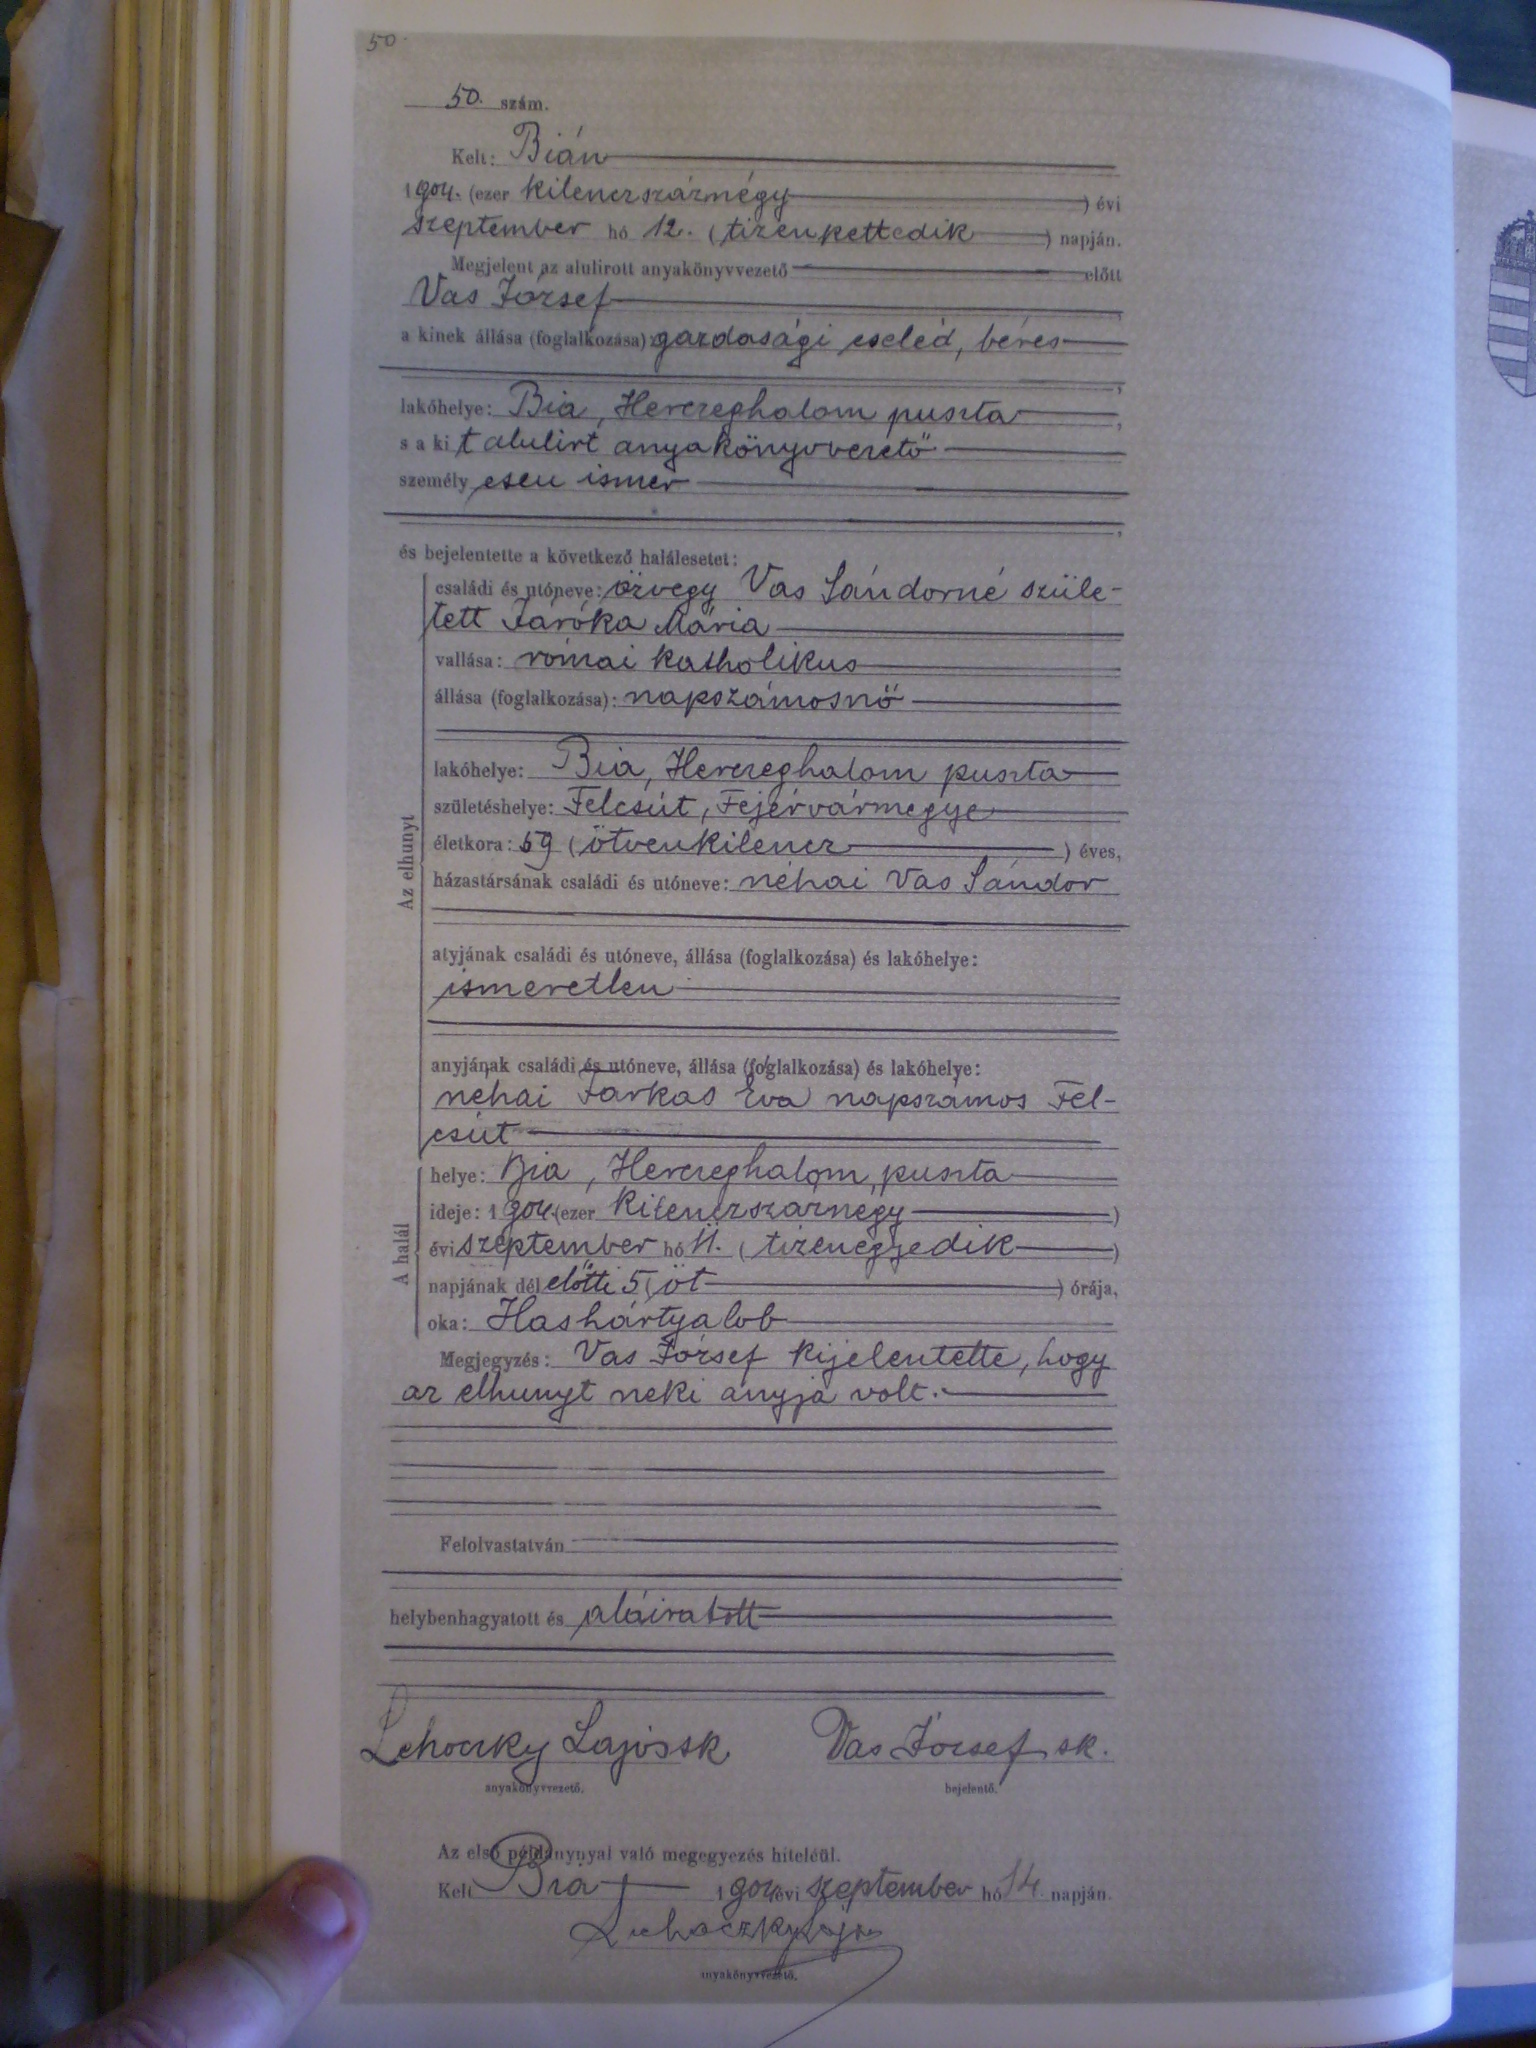 50.
50. szám.
Kelt: Bián
1904. (ezer kilenczszáznégy) évi
szeptember hó 12. (tizenkettedik) napján.
Megjelent az alulirott anyakönyvvezető előtt
Vas József,
a kinek állása (foglalkozása): gazdasági cseléd, béres
,
lakóhelye: Bia, Herczeghalom puszta,
s a ki t alulirt anyakönyvvezető
személy esen ismer
,
és bejelentette a következő halálesetet:
Az elhunyt
családi és utóneve: özvegy Vas Sándorné szüle-
tett Jaróka Mária
vallása: római katholikus
állása (foglalkozása): napszámosnő
lakóhelye: Bia, Herczeghalom puszta
születéshelye: Felcsút, Fejérvármegye
életkora: 59 (ötvenkilencz) éves,
házastársának családi és utóneve: néhai Vas Sándor
atyjának családi és utóneve, állása (foglalkozása) és lakóhelye:
ismeretlen
anyjának családi és utóneve, állása (foglalkozása) és lakóhelye:
néhai Farkas Éva napszámos Fel-
csút
A halál
helye: Bia, Herczeghalom puszta
ideje: 1904. (ezer kilenczszáznégy)
évi szeptember hó 11. (tizenegyedik)
napjának dél előtti 5 (öt) órája,
oka: Hashártyalob
Megjegyzés: Vas József kijelentette, hogy
az elhunyt neki anyja volt.
Felolvastatván
helybenhagyatott és aláiratott
Lehoczky Lajos sk
Vas József sk.
anyakönyvvezető.
bejelentő.
Az első példánynyal való megegyezés hiteléül.
Kelt Bia 1904 évi szeptember hó 14. napján.
Lehoczky Lajos
anyakönyvvezető.